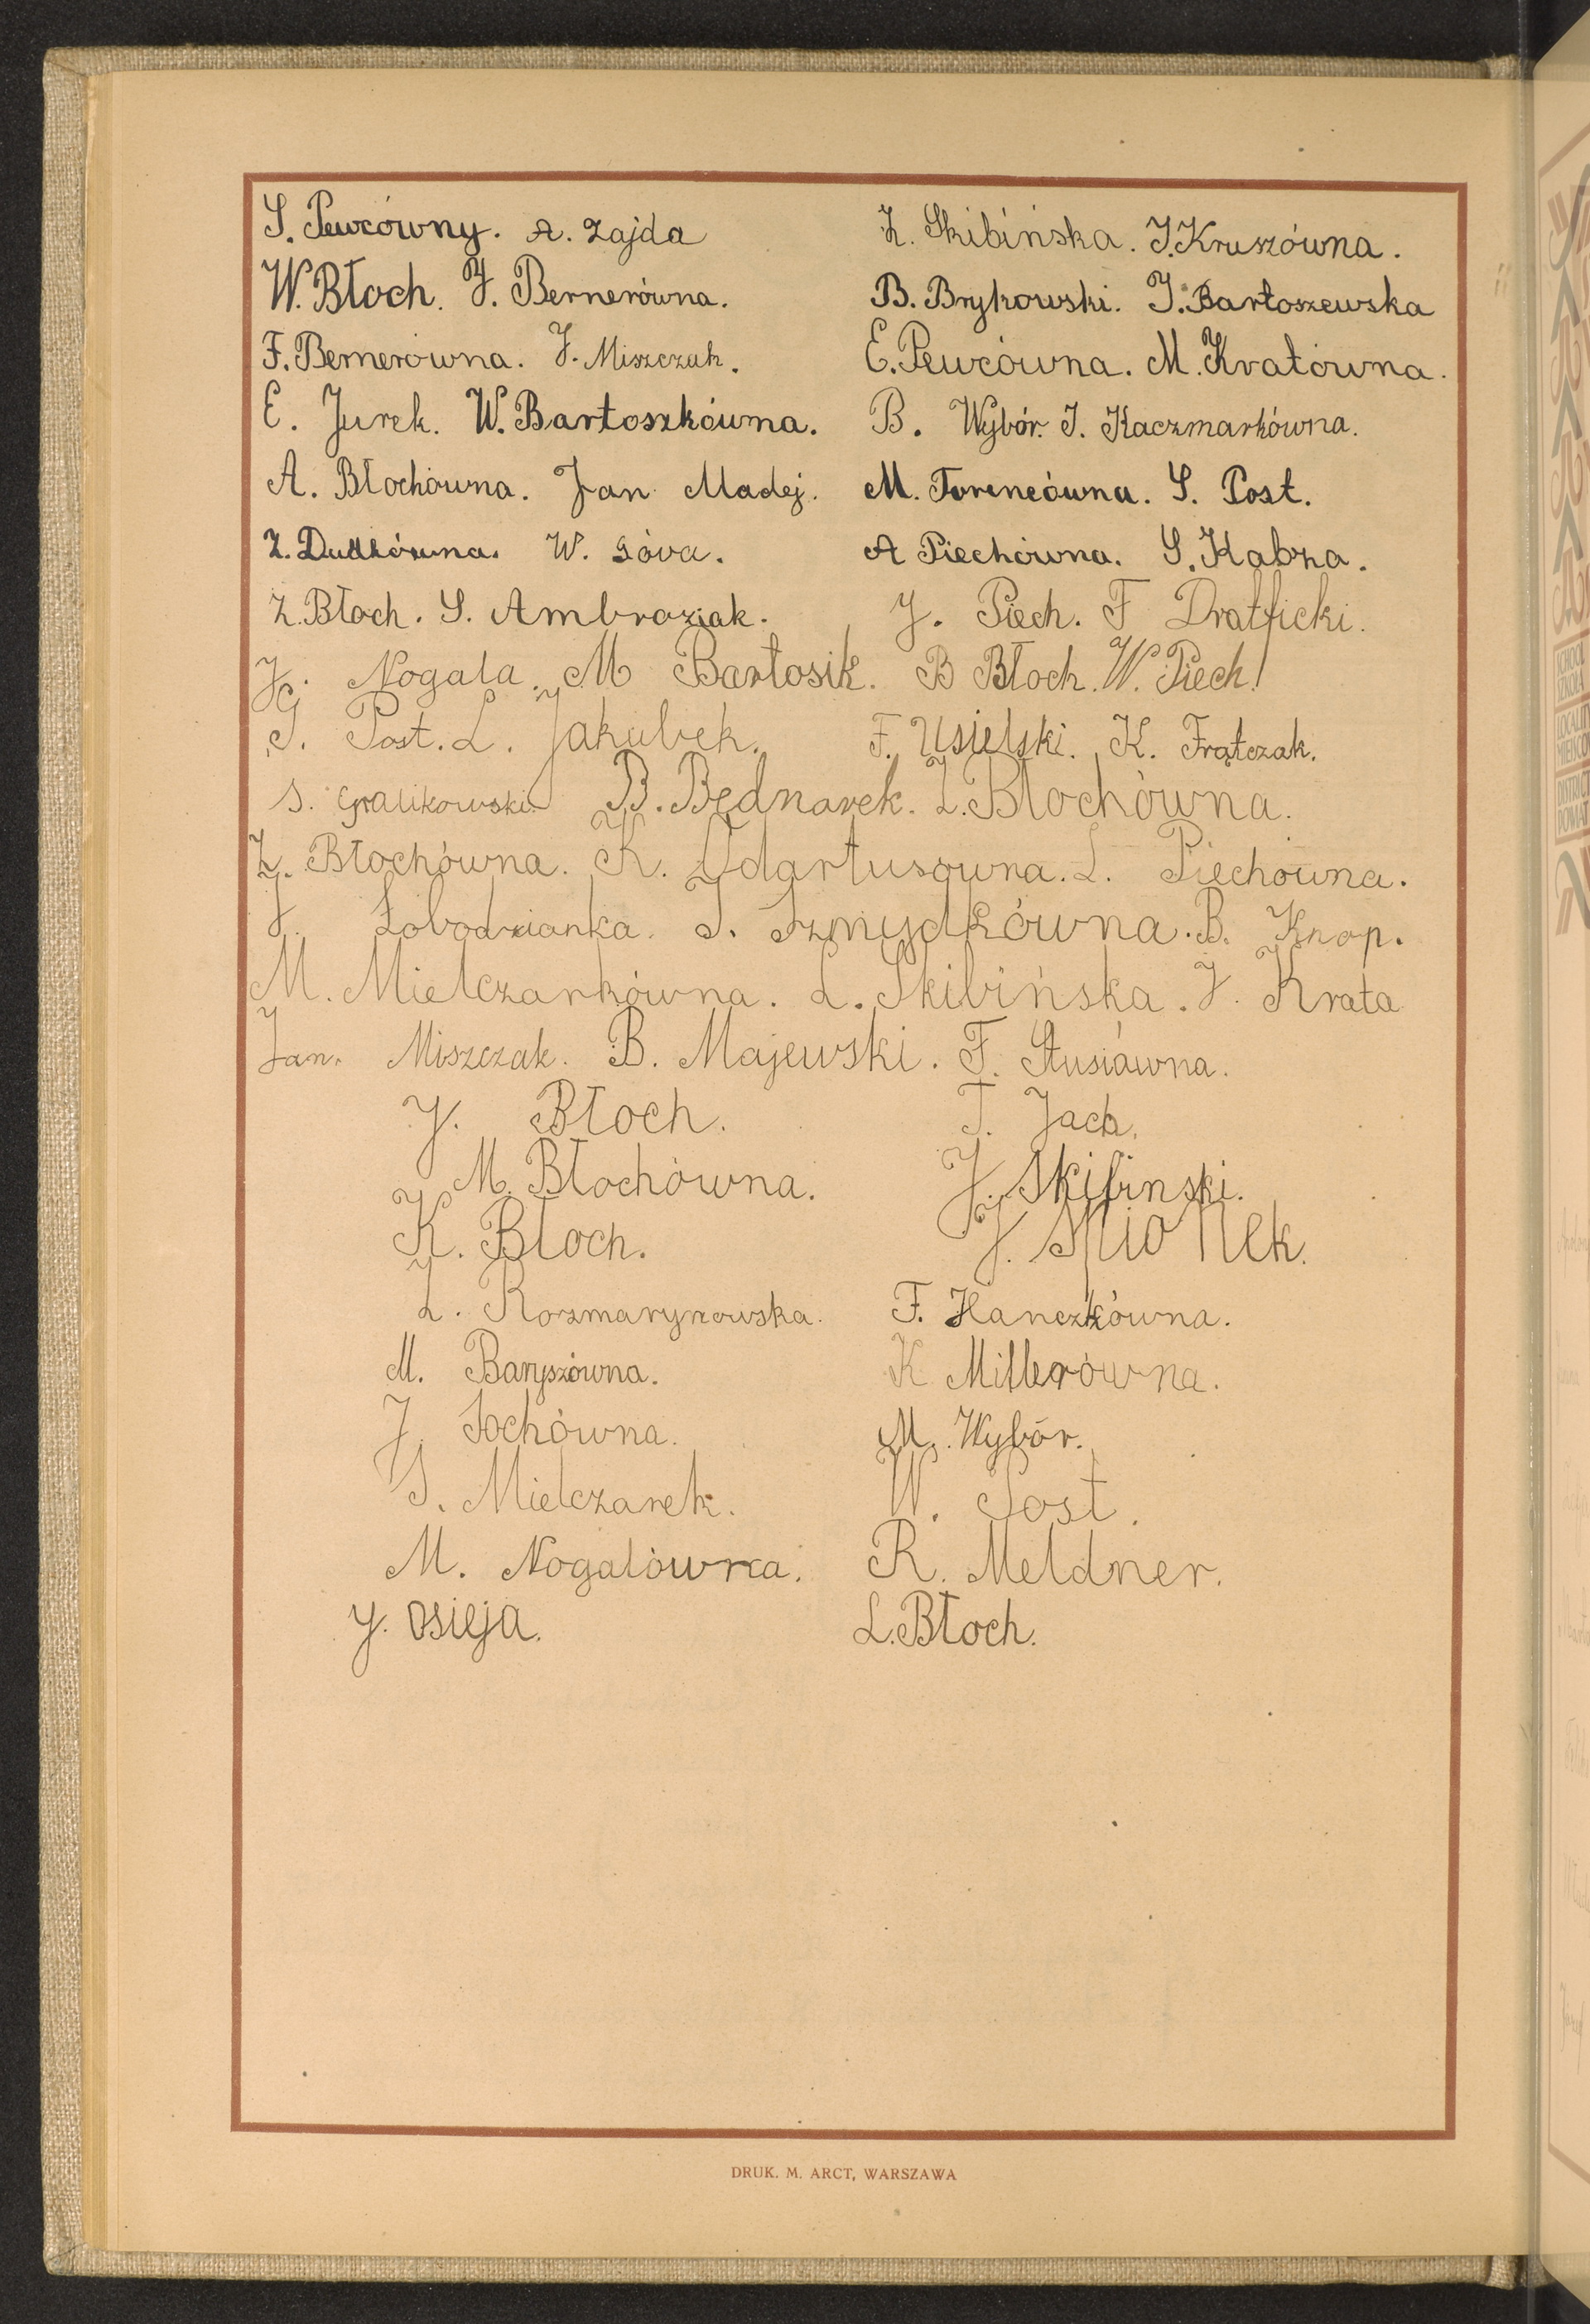 S. Pewcówny. A. Zajda Z. Skibińska. J. Kruszówna.
W. Błoch. J. Bernerówna. B. Brykowski. J. Bartoszewska
F. Bernerówna. J. Miszczuk. E. Pewcówna. M. Kratówna.
E. Jurek. W. Bartoszkówna. B. Wybór. J. Kaczmarkówna.
A. Błochówna. Jan Madej. M. Torencówna. S. Post.
Z. Dudkówna. W. Góra. A Piechówna. S. Kabza.
Z. Błoch. S. Ambroziak. J. Piech. F Dratficki.
J. Nogala. M Bartosik. B Błoch. W. Piech.
S. Post. L. Jakubek. F. Usielski. K. Frątczak.
S. Gralikowski. B. Bednarek. L. Błochówna.
Z. Błochówna. K. Odartusówna. L. Piechówna.
J. Łobodzianka. S. Szmydkówna. B. Knop.
M. Mielczarkówna. L. Skibińska. J. Krata
Jan. Miszczak. B. Majewski. F. Stusiówna.
J. Błoch. T. Jach.
M. Błochówna. J. Skibinski.
K. Błoch. J. Spionek.
L. Rozmarynowska. F. Hanczkówna.
M. Baryszówna. K Millerówna.
J. Sochówna. M. Wybór.
S. Mielczarek. W. Post.
M. Nogalówna. R. Meldner.
J. Osieja. L. Błoch.
DRUK. M. ARCT, WARSZAWA